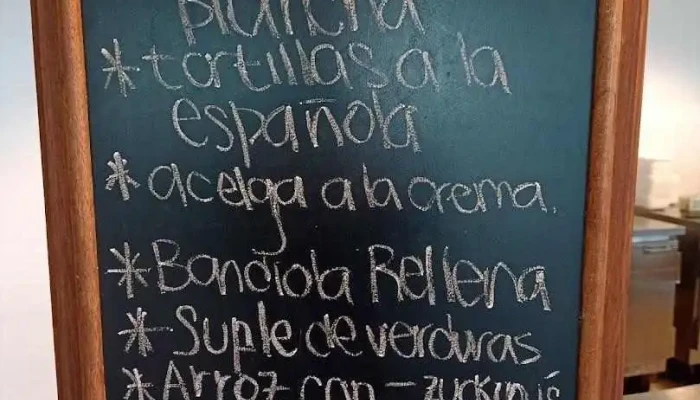 Plancha
*tortillas a la
española
*acelga a la crema.
*Bandiola Rellena
*Suple de verduras
*Arroz con - zuckinis